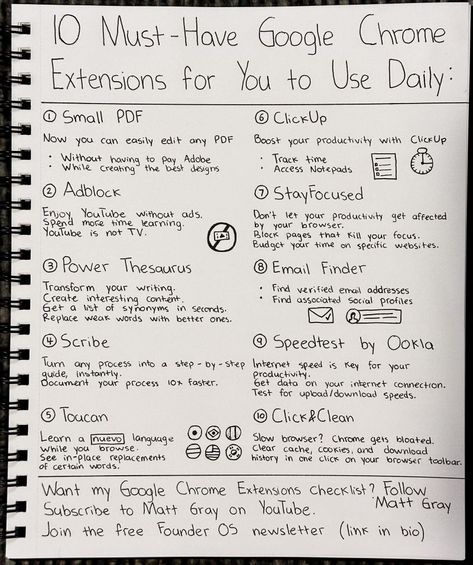 10 Must-Have Google Chrome
Extensions for You to Use Daily:
① Small PDF
Now you can easily edit any PDF
• Without having to pay Adobe
• While creating the best designs
② Adblock
Enjoy YouTube without ads.
Spend more time learning.
YouTube is not TV.
③ Power Thesaurus
Transform your writing.
Create interesting content.
Get a list of synonyms in seconds.
Replace weak words with better ones.
④ Scribe
Turn any process into a step-by-step
guide, instantly.
Document your process 10x faster.
⑤ Toucan
Learn a nuevo language
while you browse.
See in-place replacements
of certain words.
⑥ ClickUp
Boost your productivity with ClickUp
• Track time
• Access Notepads
⑦ StayFocused
Don't let your productivity get affected
by your browser.
Block pages that kill your focus.
Budget your time on specific websites.
⑧ Email Finder
• Find verified email addresses
• Find associated social profiles
⑨ Speedtest by Ookla
Internet speed is key for your
productivity.
Get data on your internet connection.
Test for upload/download speeds.
⑩ Click&Clean
Slow browser? Chrome gets bloated.
Clear cache, cookies, and download
history in one click on your browser toolbar.
Want my Google Chrome Extensions checklist? Follow
Matt Gray
Subscribe to Matt Gray on YouTube.
Join the free Founder OS newsletter (link in bio)